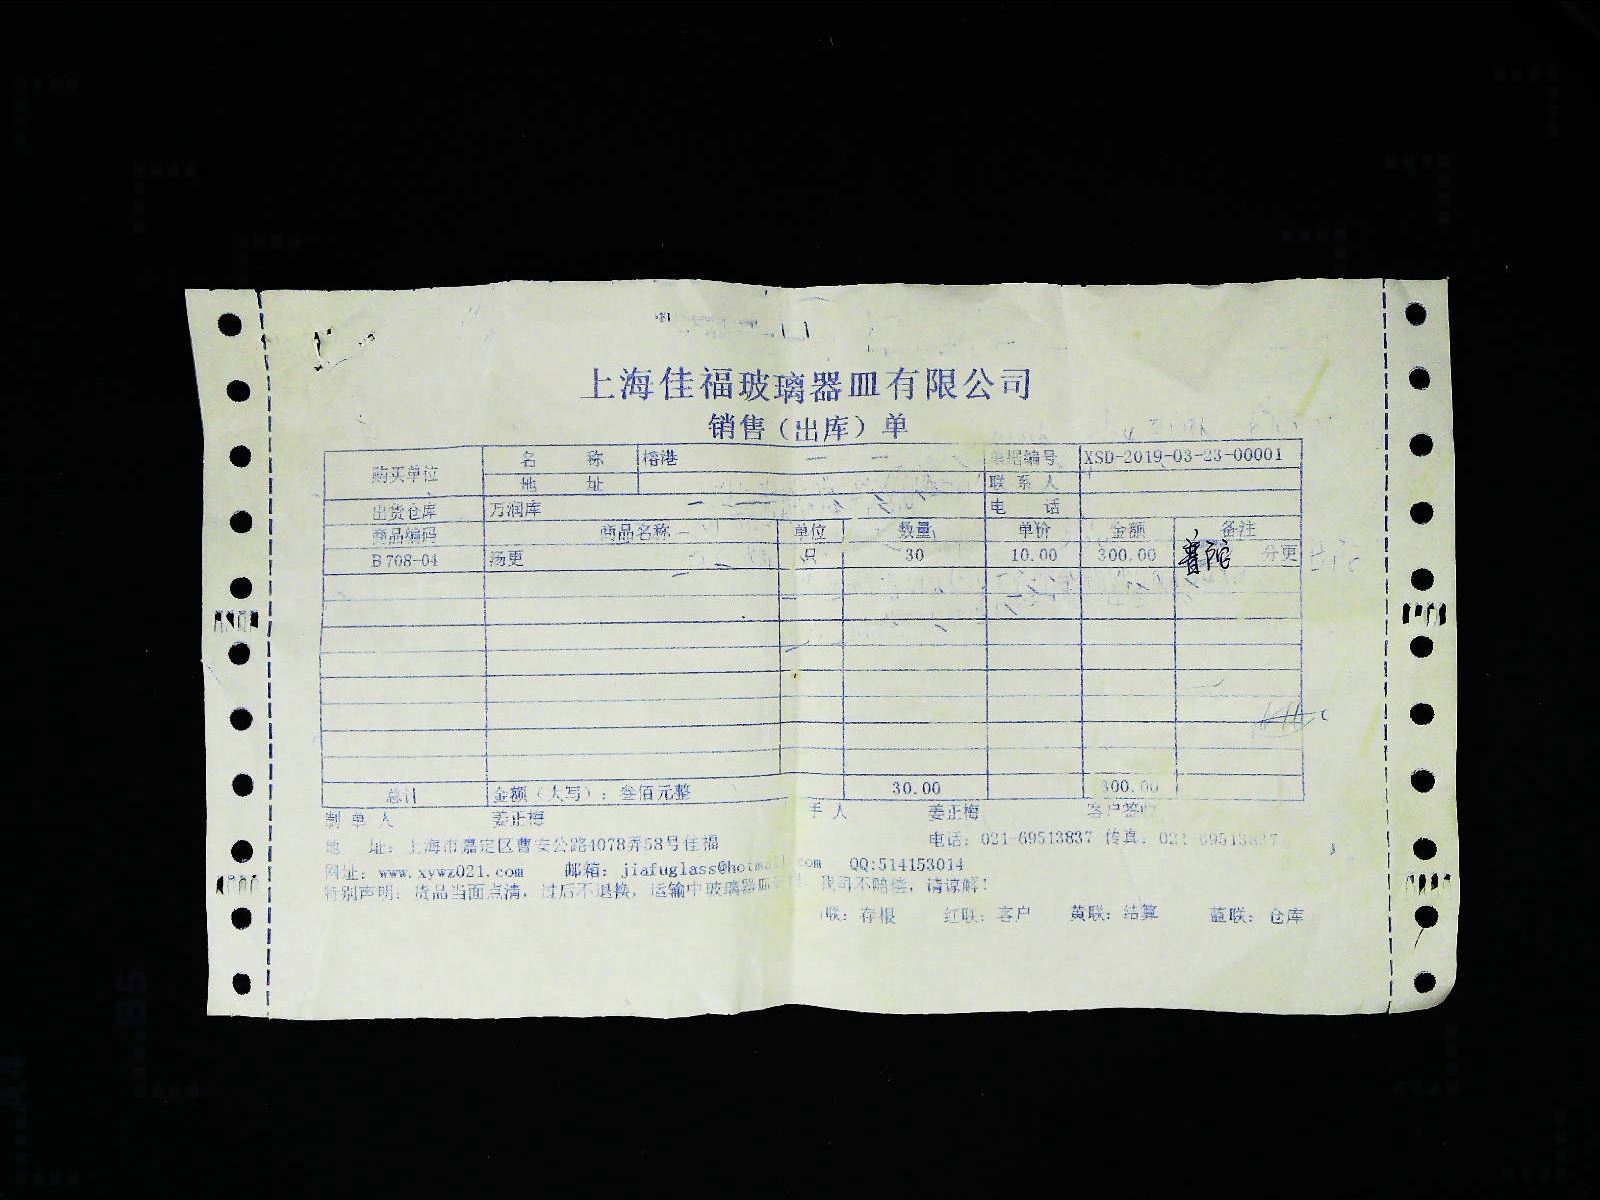 上海佳福玻璃器皿有限公司
销售（出库）单
购买单位 名 称 榕港 单据编号 XSD-2019-03-23-00001
地 址 联系人
出货仓库 万润库 电 话
商品编码 商品名称 单位 数量 单价 金额 备注
B708-04 汤更 只 30 10.00 300.00 普陀 分更
总计 金额（大写）：叁佰元整 30.00 300.00
制单人 姜正梅 手人 姜正梅 客户签收
地 址：上海市嘉定区曹安公路4078弄58号佳福 电话：021-69513837 传真：021-69513837
网址：www.xywz021.com 邮箱：jiafuglass@hotmail.com QQ:514153014
特别声明：货品当面点清，过后不退换，运输中玻璃器皿 我司不赔偿，请谅解！
联：存根 红联：客户 黄联：结算 蓝联：仓库